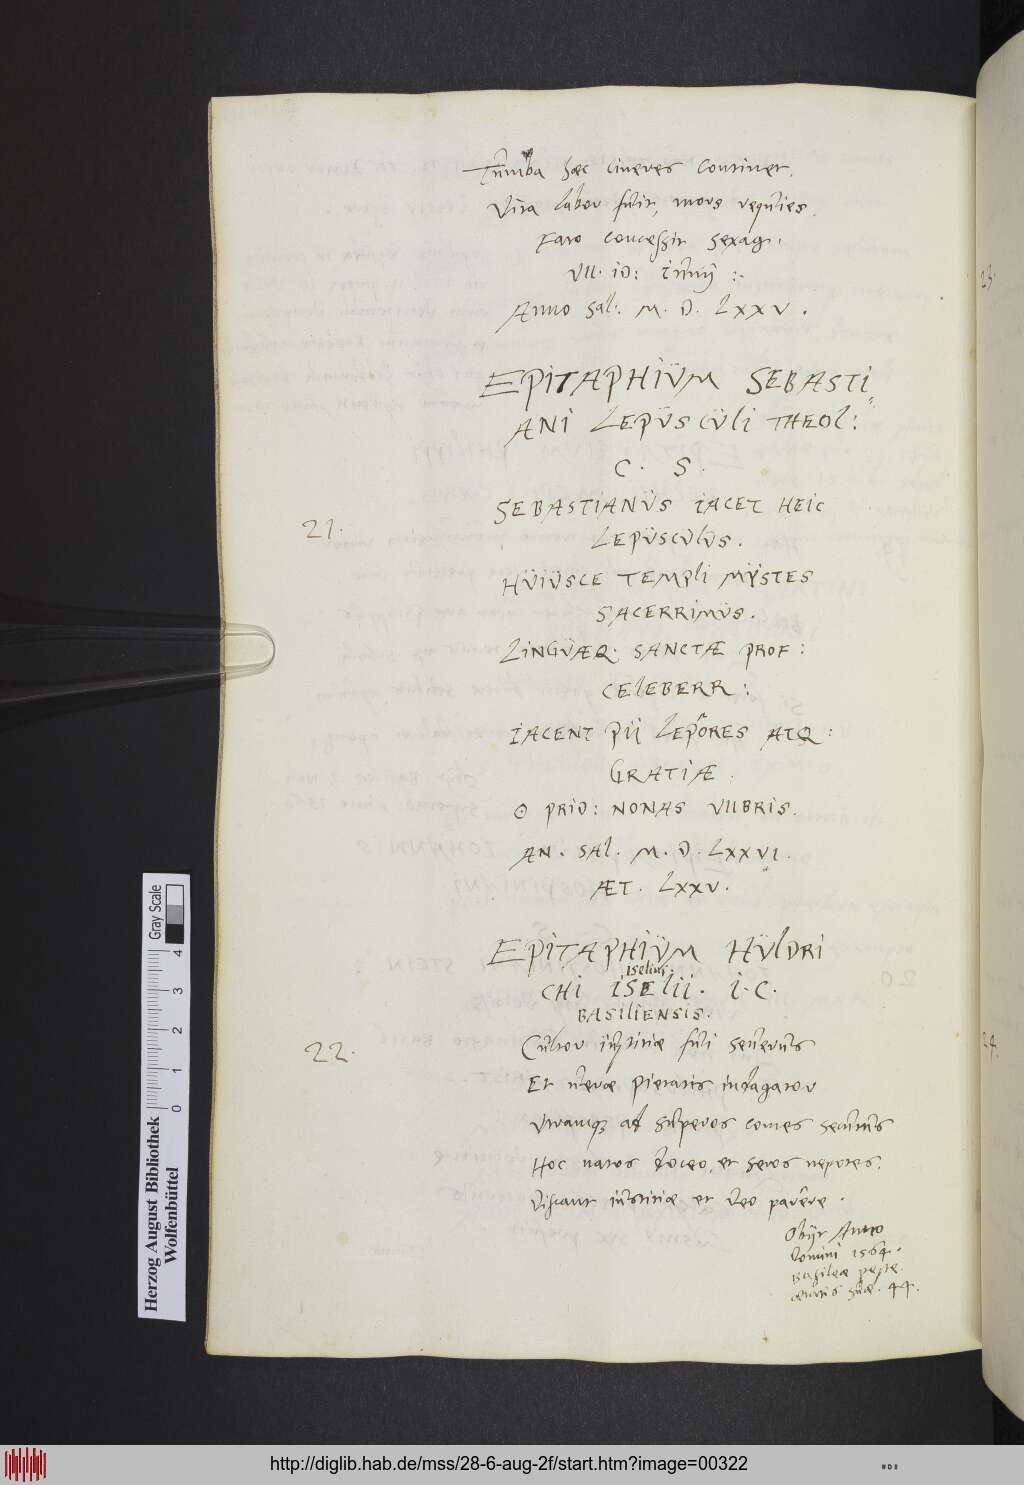 Tumba haec cineres continet.
Vita labor fuit, mors requies.
Fato concessit sexag.
VII. ID: Iunij :.
Anno Sal: M. D. LXXV.
EPITAPHIUM SEBASTI
ANI LEPUSCULI THEOL:
C. S.
21.
SEBASTIANUS IACET HEIC
LEPUSCULUS.
HUIUSCE TEMPLI MYSTES
SACERRIMUS.
LINGUÆQ. SANCTÆ PROF:
CELEBERR:
IACENT PII LEPORES ATQ:
GRATIÆ.
☉ PRID: NONAS VIIBRIS.
AN. SAL. M. D. LXXVI.
ÆT. LXXV.
EPITAPHIUM HULDRI
Iselius.
CHI ISELII. I. C.
BASILIENSIS.
22.
Cultor iustitiae fui severus
Et verae Pietatis indagator
Utramque ad superos comes secutus
Hoc natos doceo, et seros nepotes,
Discant iustitiae et Deo parere.
Obijt Anno
Domini 1564.
Basileae peste.
aetatis suae. 44.
23.
24.
Herzog August Bibliothek
Wolfenbüttel
Gray Scale
0 1 2 3 4
http://diglib.hab.de/mss/28-6-aug-2f/start.htm?image=00322